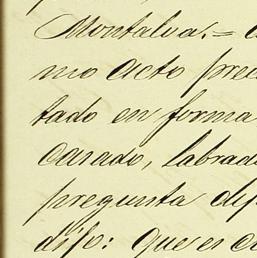 Montalva.=
mo acto prec
tado en forma
casado, labrad
pregunta dep
dijo: Que es ca